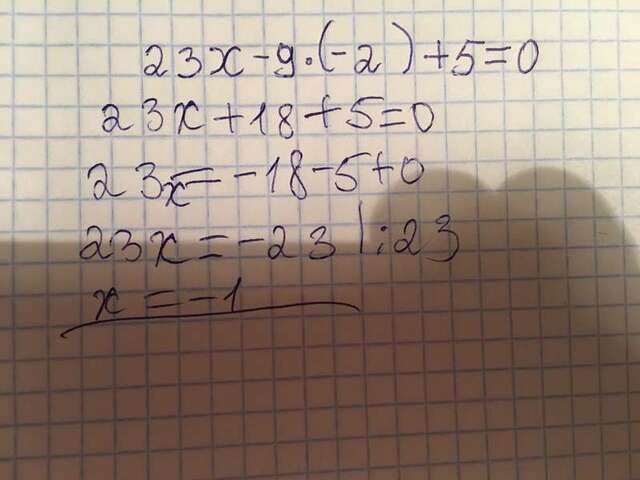 23x-9·(-2)+5=0
23x+18+5=0
23x=-18-5+0
23x=-23 |:23
x=-1